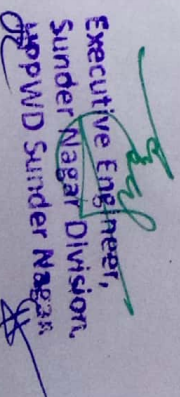 Executive Engineer,
Sunder Nagar Division,
HPPWD Sunder Nagar